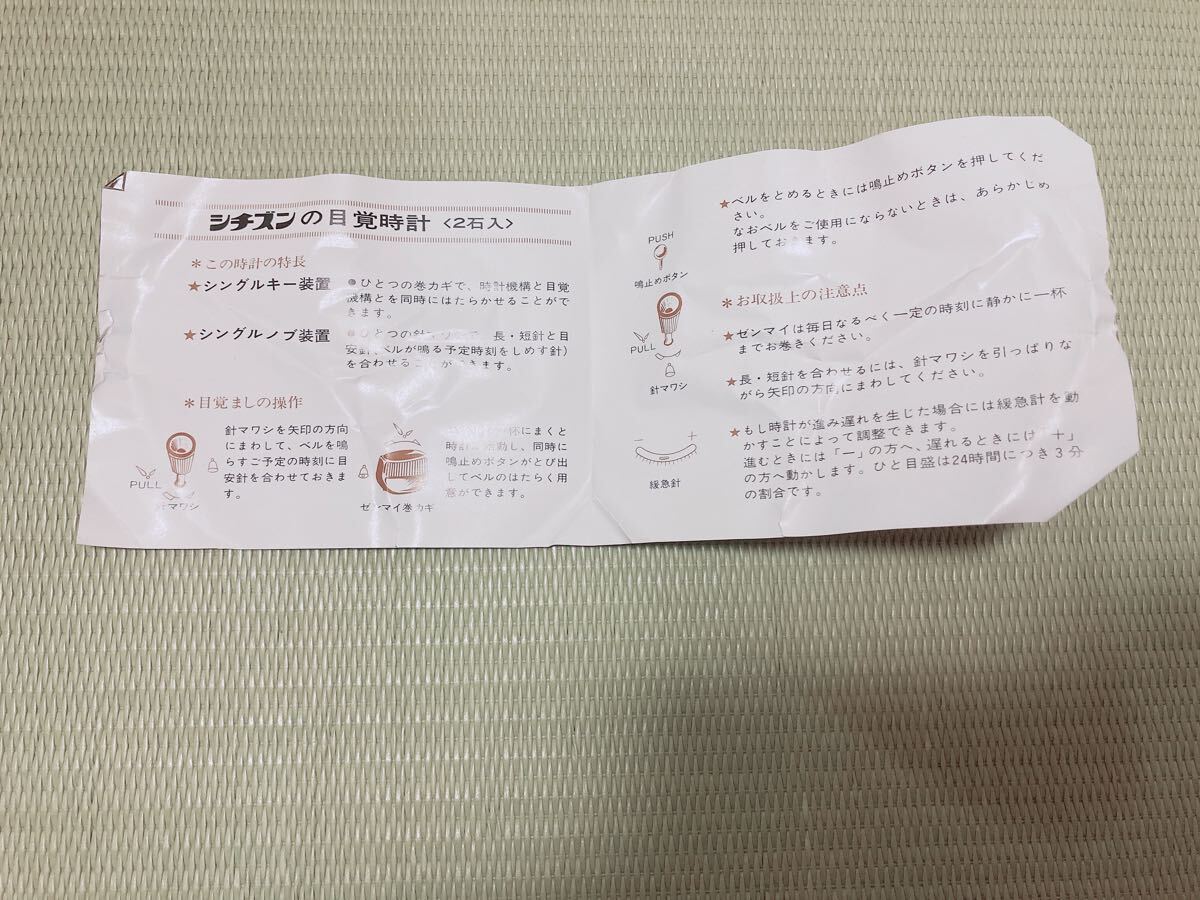 シチズンの目覚時計〈2石入〉
＊この時計の特長
★シングルキー装置
●ひとつの巻カギで、時計機構と目覚
機構とを同時にはたらかせることがで
きます。
★シングルノブ装置
●ひとつの針 で、長・短針と目
安針(ベルが鳴る予定時刻をしめす針)
を合わせる ができます。
＊目覚ましの操作
PULL
針マワシ
針マワシを矢印の方向
にまわして、ベルを鳴
らすご予定の時刻に目
安針を合わせておきま
す。
ゼンマイ巻カギ
杯にまくと
時計 動し、同時に
鳴止めボタンがとび出
してベルのはたらく用
意ができます。
PUSH
鳴止めボタン
PULL
針マワシ
★ベルをとめるときには鳴止めボタンを押してくだ
さい。
なおベルをご使用にならないときは、あらかじめ
押しておきます。
＊お取扱上の注意点
★ゼンマイは毎日なるべく一定の時刻に静かに一杯
までお巻きください。
★長・短針を合わせるには、針マワシを引っぱりな
がら矢印の方向にまわしてください。
− ＋
緩急針
★もし時計が進み遅れを生じた場合には緩急計を動
かすことによって調整できます。
進むときには「−」の方へ、遅れるときには「＋」
の方へ動かします。ひと目盛は24時間につき3分
の割合です。